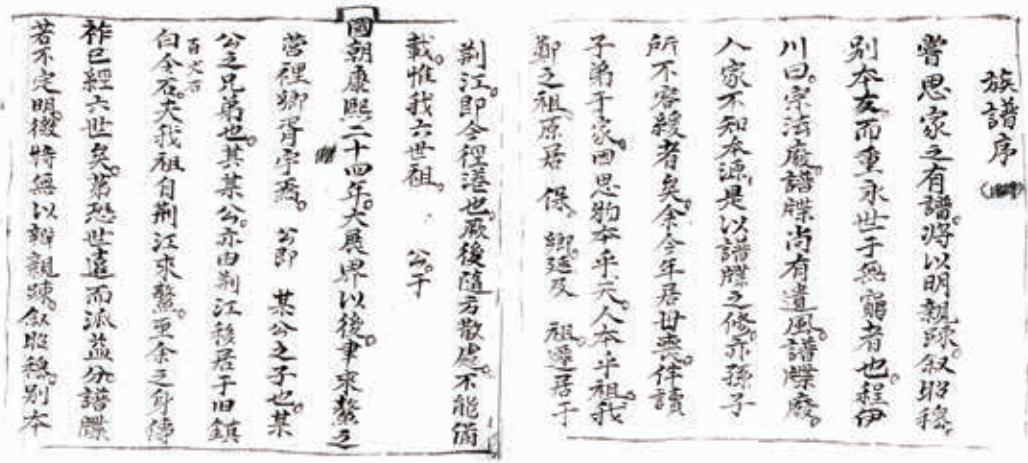 族譜序
嘗思家之有譜。將以明親踈。叙昭穆。
别本支。而重永世于無窮者也。程伊
川曰。宗法廢。譜牒尚有遺風。譜牒廢。
人家不知本源。是以譜牒之修。亦孫子
所不容緩者矣。余今年居母喪。伴讀
子弟于家。因思物本乎天。人本乎祖。我
鄭之祖。原居 保 鄉。延及 祖。遷居于
荆江。即今徑港也。厥後隨方散處。不能備
載。惟我六世祖。 公。于
國朝康熙二十四年。大展界以後。聿來鰲之
營裡鄉胥宇焉。 公即 某公之子也。某
公之兄弟也。其某公。亦由荆江移居于旧鎮
百大石
白今在。夫我祖自荆江來鰲。至余之身。傳
祚已經六世矣。第恐世遠而派益分。譜牒
若不定明徵。特無以辨親踈。叙昭穆。别本